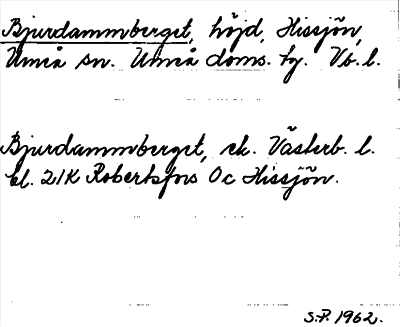 Bjurdammberget, höjd, Hissjön,
Umeå sn. Umeå doms. tg. Vb. l.
Bjurdammberget, ek. Västerb. l.
bl. 21K Robertsfors Oc Hissjön.
S.P. 1962.